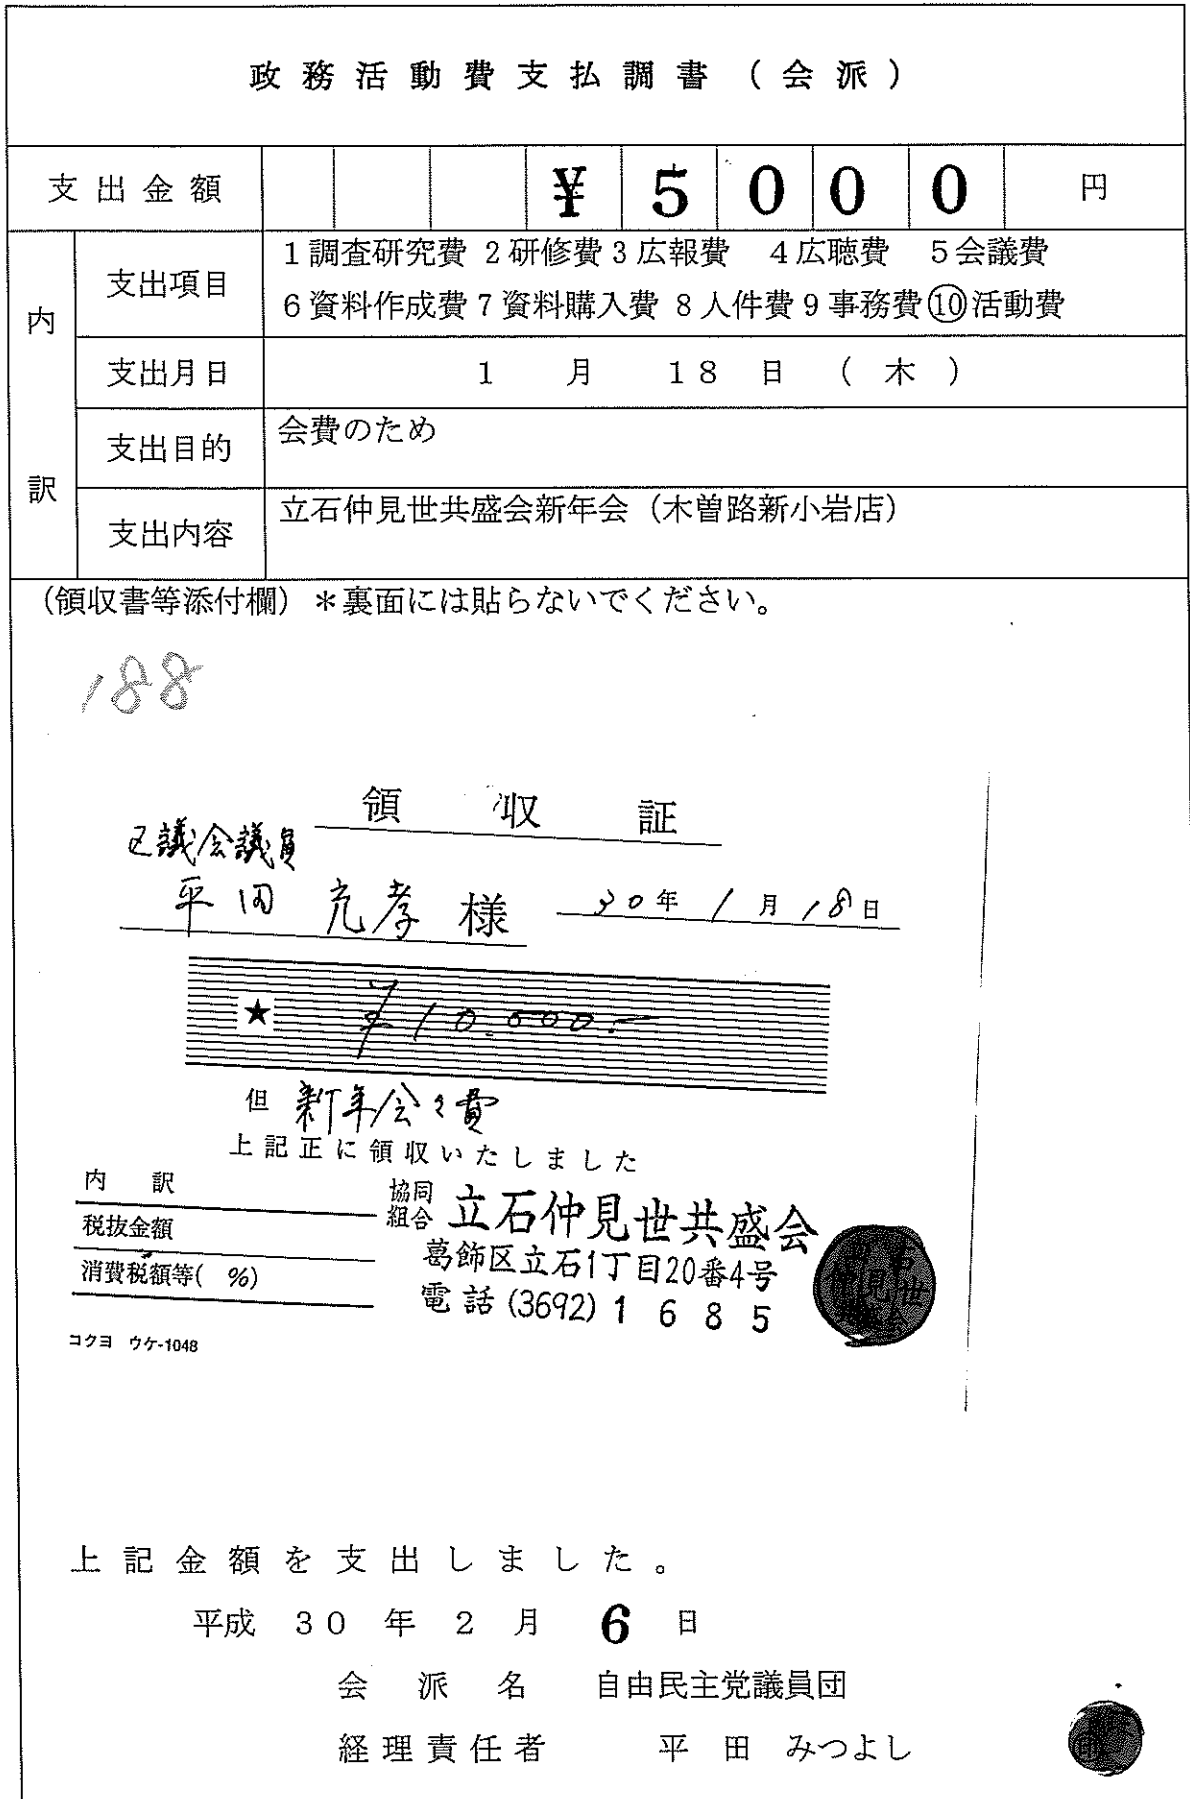 政務活動費支払調書（会派）
支出金額 ¥5000 円
内訳
支出項目 1調査研究費 2研修費 3広報費 4広聴費 5会議費
6資料作成費 7資料購入費 8人件費 9事務費 ⑩活動費
支出月日 1月18日（木）
支出目的 会費のため
支出内容 立石仲見世共盛会新年会（木曽路新小岩店）
（領収書等添付欄）＊裏面には貼らないでください。
188
領収証
区議会議員
平田充孝様 30年1月18日
★ ¥10.000.-
但 新年会々費
上記正に領収いたしました
内訳
税抜金額
消費税額等( %)
コクヨ ウケ-1048
協同組合 立石仲見世共盛会
葛飾区立石1丁目20番4号
電話(3692)1685
上記金額を支出しました。
平成30年2月6日
会派名 自由民主党議員団
経理責任者 平田みつよし